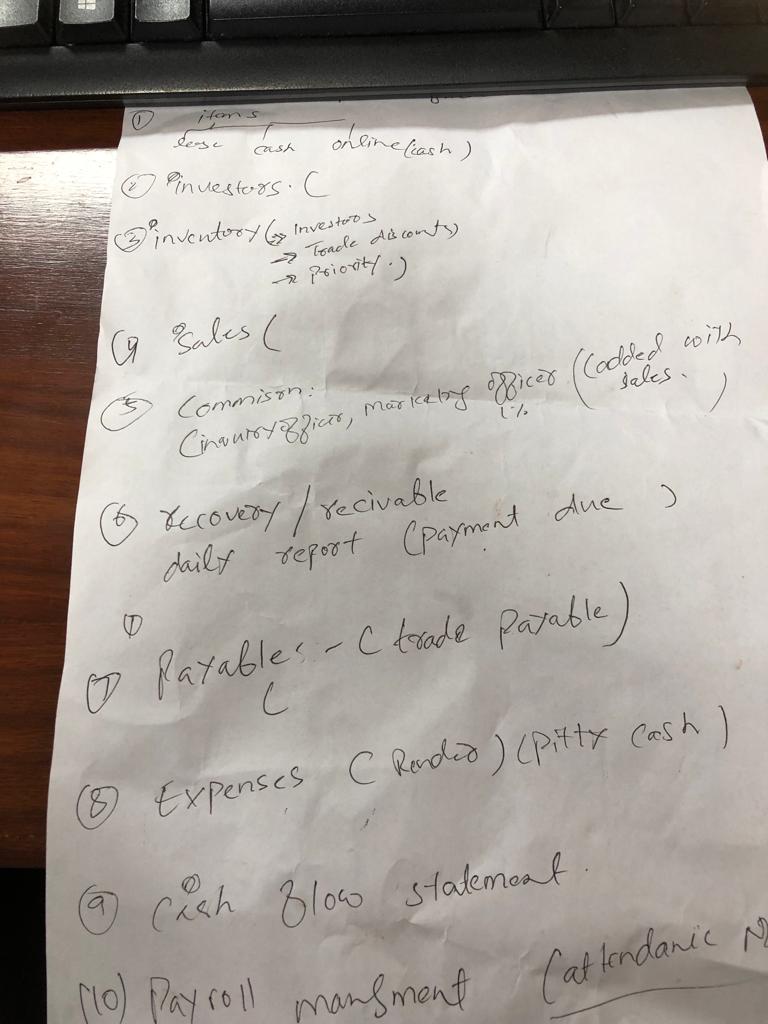 ① items
lease cash online (cash)
② investors. (
③ inventory (→ Investors
→ Trade discounts)
→ Priority.)
④ Sales (
⑤ Commison:
(inquiry officer, marketing officer (Codded with
1% sales. )
⑥ recovery / recivable
daily report (payment due )
⑦ Payables - (trade payable)
(
⑧ Expenses ( ) (Pitty Cash)
⑨ Cash flow statement.
(10) Payroll mansment (attendanic